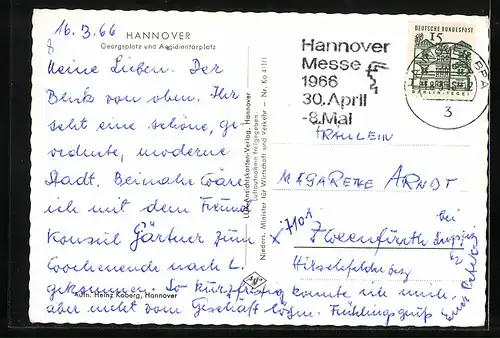 16.3.66
8
HANNOVER
Georgsplatz und Aegidientorplatz
Meine Lieben. Der
Blick von oben. Ihr
seht eine schöne, ge-
ordnete, moderne
Stadt. Beinahe wäre
ich mit dem Freund
Konsul Gärtner zum
Wochenende nach L.
gekommen. So kurzfristig konnte ich mich
aber nicht vom Geschäft lösen. Frühlingsgruß
Aufn. Heinz Koberg, Hannover
Ansichtskarten-Verlag, Hannover
Luftaufnahme freigegeben:
Nieders. Minister für Wirtschaft und Verkehr — Nr. Ko 411/1
Hannover
Messe
1966
30. April
-8. Mai
DEUTSCHE BUNDESPOST
15
3
FRÄULEIN
MAGARETHE ARNDT
7101
Zweenfurth
bei
Leipzig
Hirschfelder
Euer